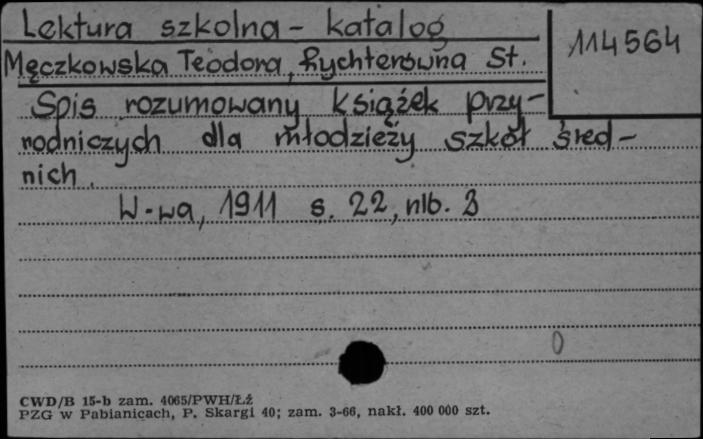 Lektura szkolna - katalog
114564
Męczkowska Teodora, Rychterówna St.
Spis rozumowany książek przy-
rodniczych dla młodzieży szkół śred-
nich.
W-wa, 1911 s. 22, nlb. 3
0
CWD/B 15-b zam. 4065/PWH/Łź
PZG w Pabianicach, P. Skargi 40; zam. 3-66, nakł. 400 000 szt.